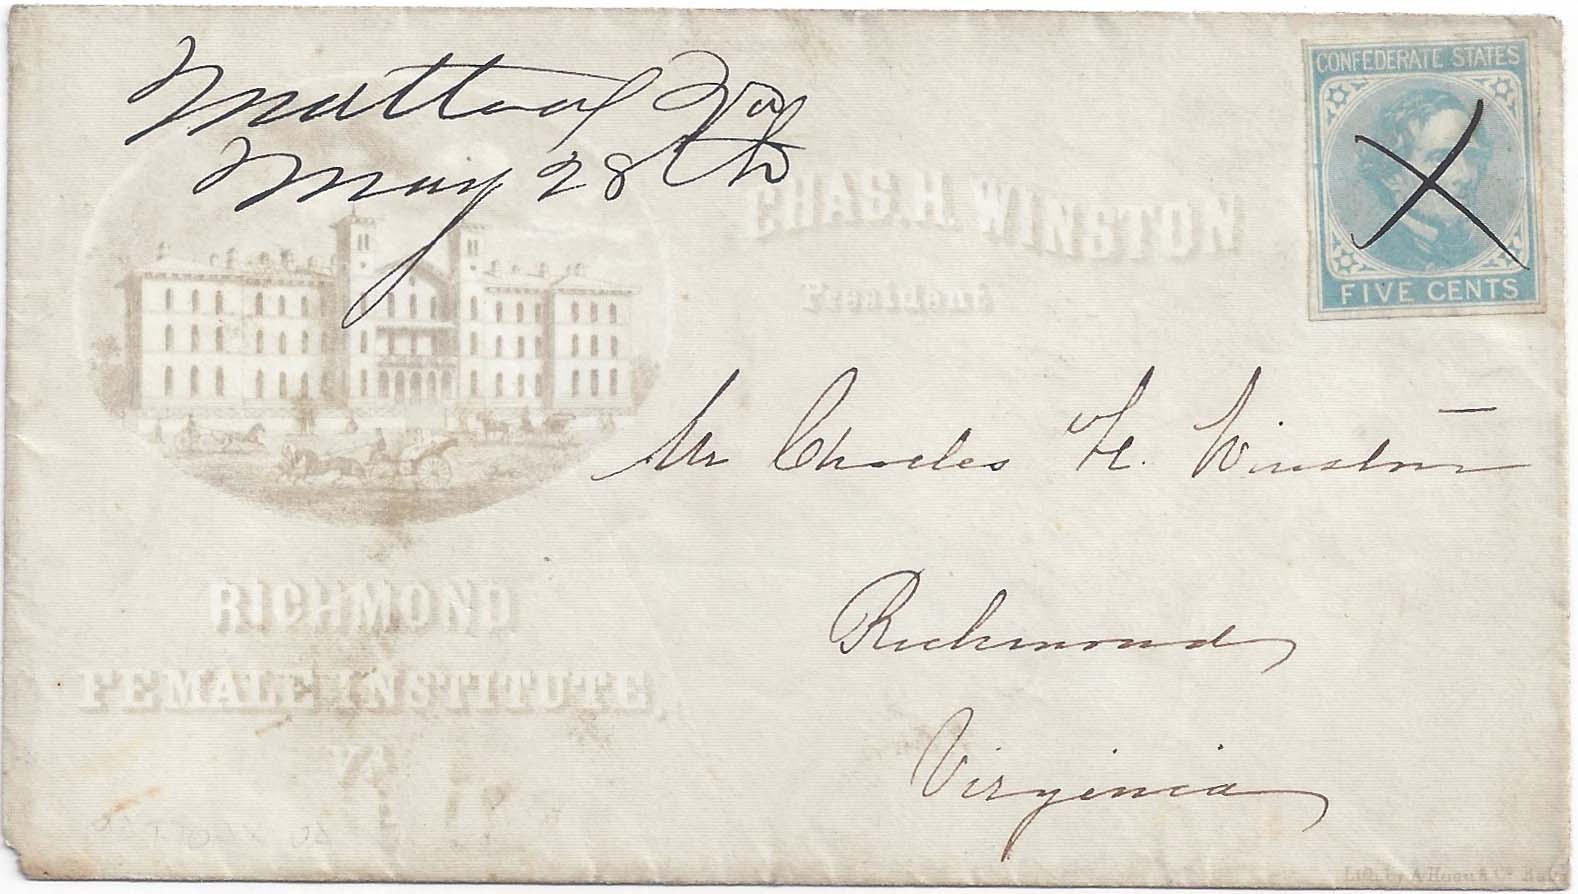 Mattoax Va
May 28th
CONFEDERATE STATES
FIVE CENTS
CHAS. H. WINSTON
President
Mr Charles H. Winston
Richmond
Virginia
RICHMOND
FEMALE INSTITUTE,
VA.
Lith. by A. Hoen & Co. Balto